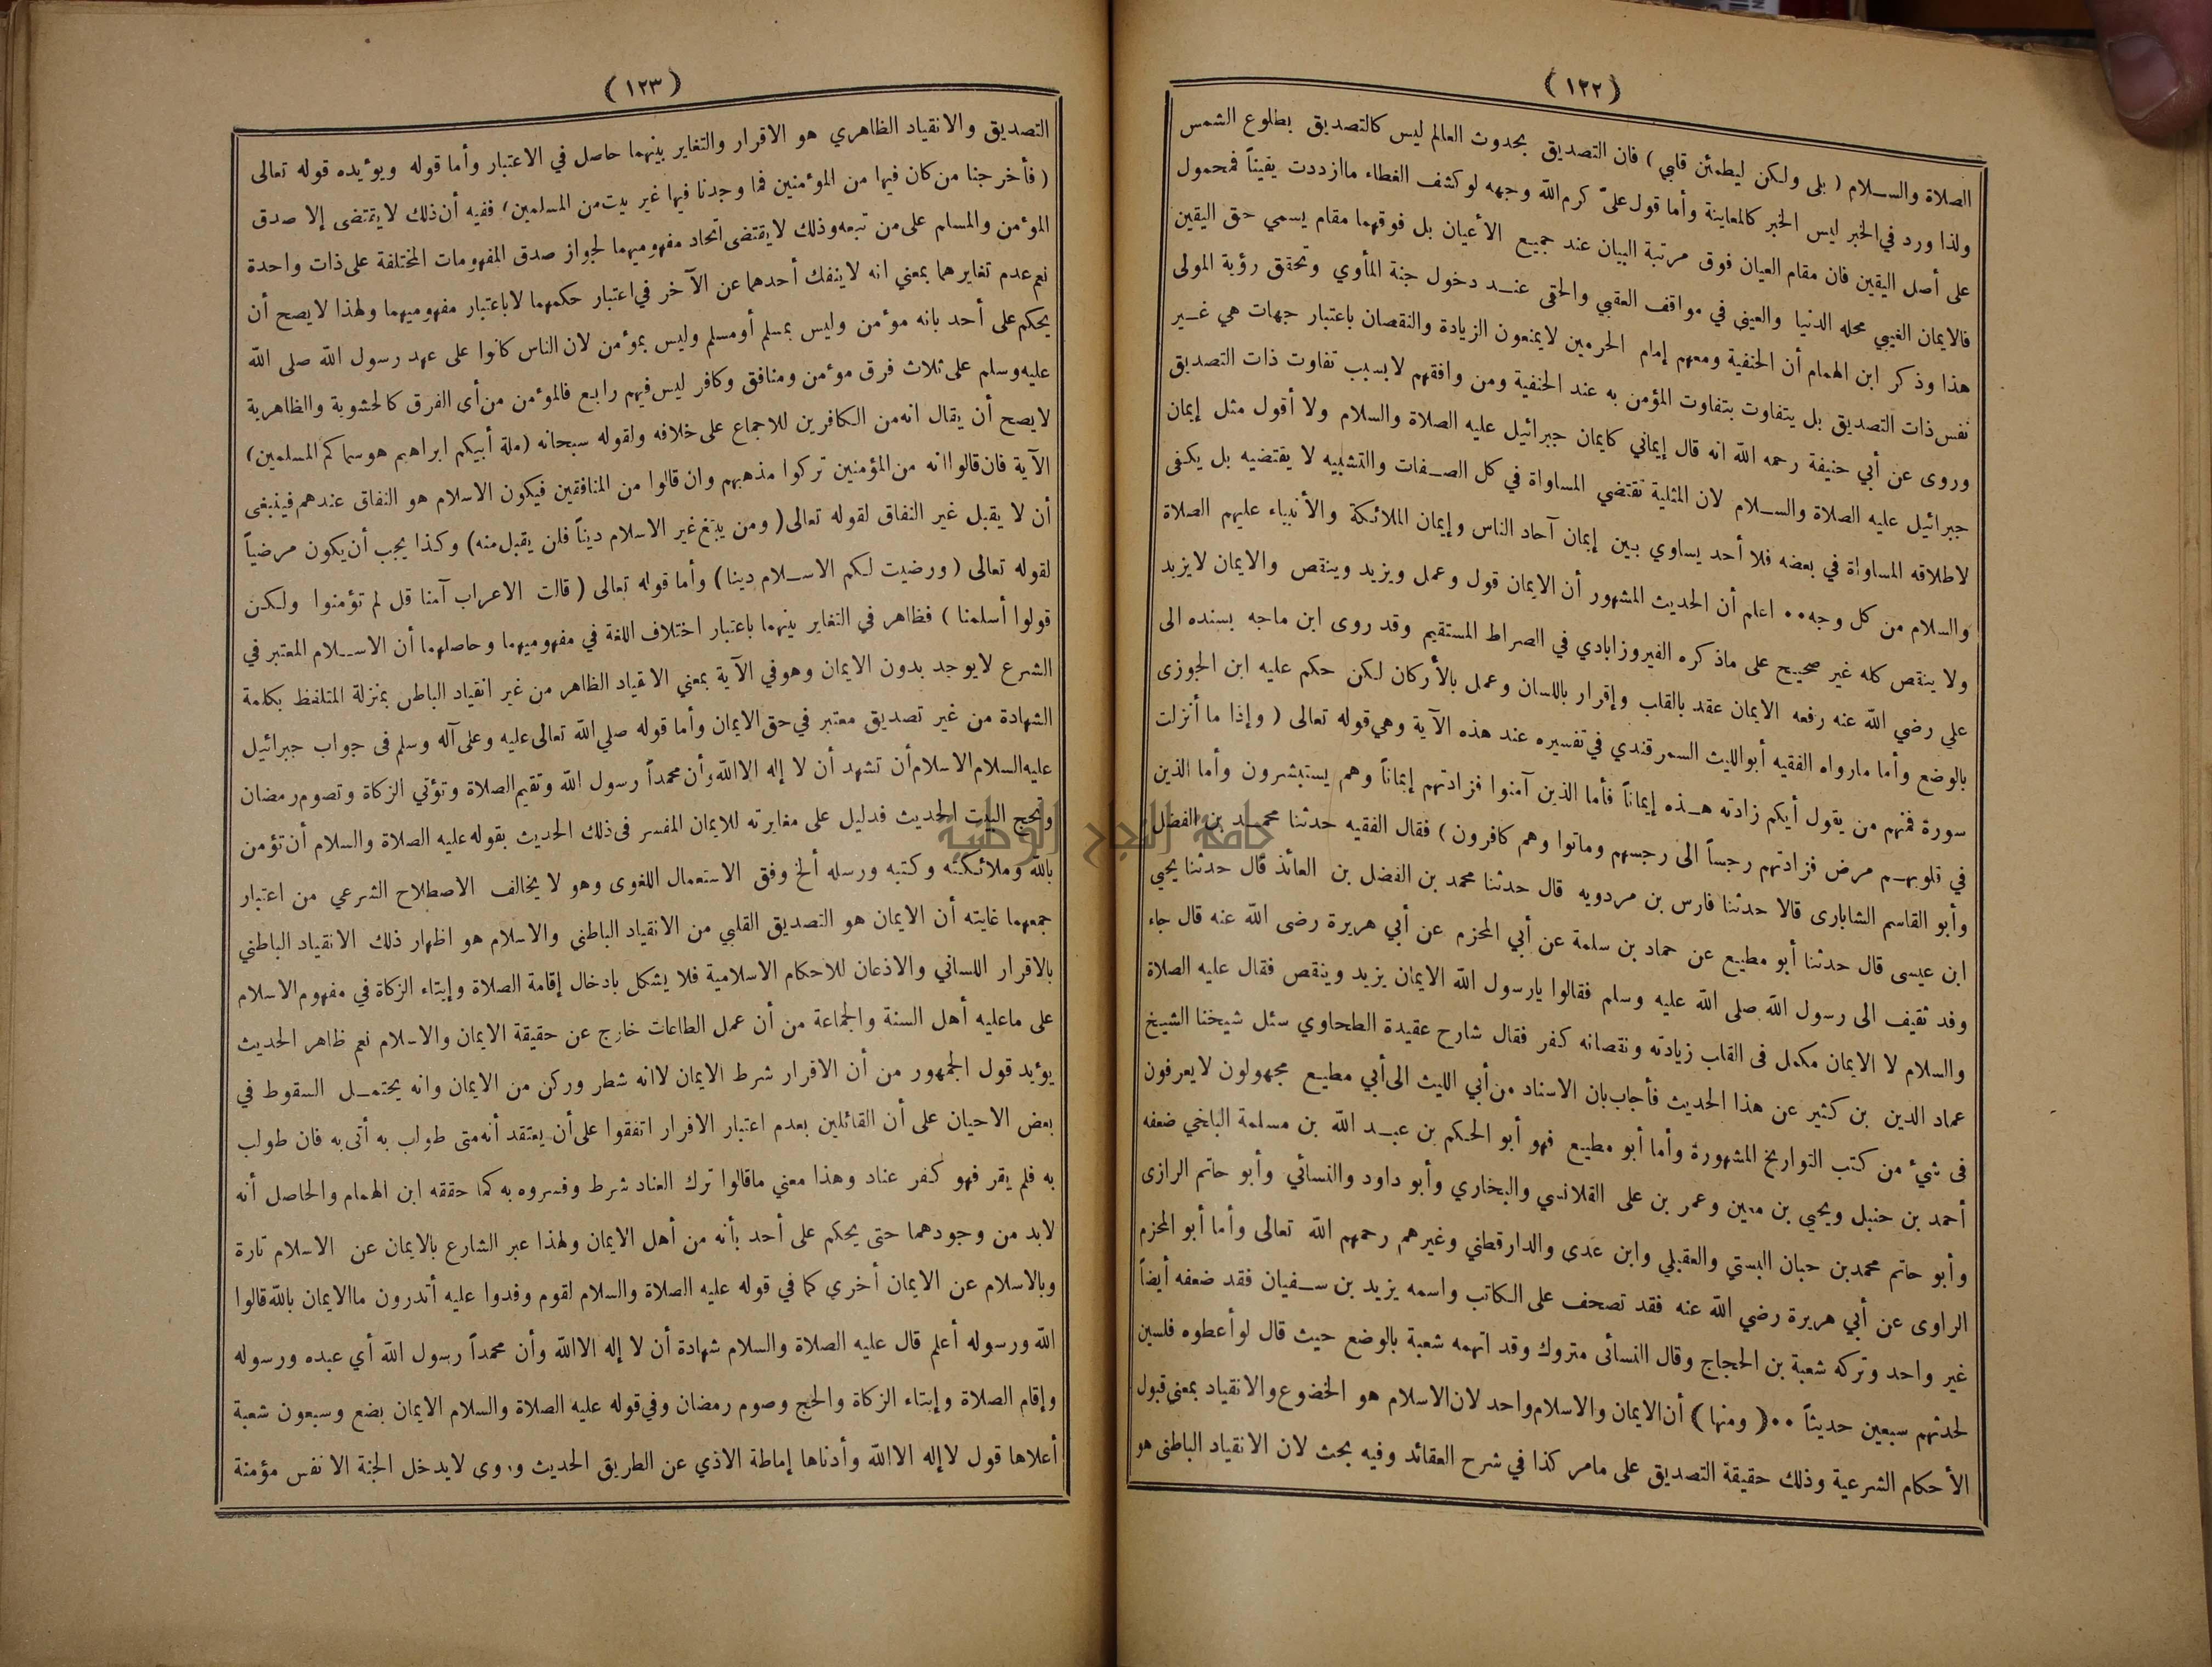 (١٢٢)
الصلاة والسلام ( بلى ولكن ليطمئن قلبي ) فان التصديق بحدوث العالم ليس كالتصديق بطلوع الشمس
ولذا ورد في الخبر ليس الخبر كالمعاينة وأما قول علىّ كرم الله وجهه لو كشف الغطاء ماازددت يقيناً فمحمول
على أصل اليقين فان مقام العيان فوق مرتبة البيان عند جميع الأعيان بل فوقهما مقام يسمي حق اليقين
فالايمان الغيبي محله الدنيا والعيني في مواقف العقبي والحقى عند دخول جنة المأوي وتحقق رؤية المولى
هذا وذكر ابن الهمام أن الحنفية ومعهم إمام الحرمين لايمنعون الزيادة والنقصان باعتبار جهات هي غير
نفس ذات التصديق بل يتفاوت بتفاوت المؤمن به عند الحنفية ومن وافقهم لا بسبب تفاوت ذات التصديق
وروى عن أبي حنيفة رحمه الله انه قال إيماني كايمان جبرائيل عليه الصلاة والسلام ولا أقول مثل إيمان
جبرائيل عليه الصلاة والسلام لان المثلية تقتضي المساواة في كل الصفات والتشبيه لا يقتضيه بل يكفى
لاطلاقه المساواة في بعضه فلا أحد يساوي بين إيمان آحاد الناس وإيمان الملائكة والأنبياء عليهم الصلاة
والسلام من كل وجه •• اعلم أن الحديث المشهور أن الايمان قول وعمل ويزيد وينقص والايمان لايزيد
ولا ينقص كله غير صحيح على ماذكره الفيروزابادي في الصراط المستقيم وقد روى ابن ماجه بسنده الى
علي رضي الله عنه رفعه الايمان عقد بالقلب وإقرار باللسان وعمل بالأركان لكن حكم عليه ابن الجوزى
بالوضع وأما مارواه الفقيه أبوالليث السمرقندي في تفسيره عند هذه الآية وهي قوله تعالى ( وإذا ما أنزلت
سورة فمنهم من يقول أيكم زادته هذه إيماناً فأما الذين آمنوا فزادتهم إيماناً وهم يستبشرون وأما الذين
في قلوبهم مرض فزادتهم رجساً الى رجسهم وماتوا وهم كافرون ) فقال الفقيه حدثنا محمد بن الفضل
وأبو القاسم الشابارى قالا حدثنا فارس بن مردويه قال حدثنا محمد بن الفضل بن العائذ قال حدثنا يحيى
ابن عيسى قال حدثنا أبو مطيع عن حماد بن سلمة عن أبي المحزم عن أبي هريرة رضى الله عنه قال جاء
وفد ثقيف الى رسول الله صلى الله عليه وسلم فقالوا يارسول الله الايمان يزيد وينقص فقال عليه الصلاة
والسلام لا الايمان مكمل فى القلب زيادته ونقصانه كفر فقال شارح عقيدة الطحاوي سئل شيخنا الشيخ
عماد الدين بن كثير عن هذا الحديث فأجاب بان الاسناد من أبي الليث الى أبي مطيع مجهولون لايعرفون
فى شيء من كتب التواريخ المشهورة وأما أبو مطيع فهو أبو الحكم بن عبد الله بن مسلمة البلخي ضعفه
أحمد بن حنبل ويحيي بن معين وعمر بن على القلانسي والبخاري وأبو داود والنسائي وأبو حاتم الرازى
وأبو حاتم محمدبن حبان البستي والعقيلي وابن عدى والدارقطني وغيرهم رحمهم الله تعالى وأما أبو المحزم
الراوى عن أبي هريرة رضي الله عنه فقد تصحف على الكاتب واسمه يزيد بن سفيان فقد ضعفه أيضاً
غير واحد وتركه شعبة بن الحجاج وقال النسائى متروك وقد اتهمه شعبة بالوضع حيث قال لو أعطوه فلسين
لحدثهم سبعين حديثاً •• ( ومنها ) أن الايمان والاسلام واحد لان الاسلام هو الخضوع والانقياد بمعنى قبول
الأحكام الشرعية وذلك حقيقة التصديق على مامر كذا في شرح العقائد وفيه بحث لان الانقياد الباطنى هو
(١٢٣)
التصديق والانقياد الظاهري هو الاقرار والتغاير بينهما حاصل في الاعتبار وأما قوله ويؤيده قوله تعالى
( فأخرجنا من كان فيها من المؤمنين فما وجدنا فيها غير بيت من المسلمين ) ففيه أن ذلك لا يقتضى إلا صدق
المؤمن والمسلم على من تبعه وذلك لايقتضى اتحاد مفهوميهما لجواز صدق المفهومات المختلفة على ذات واحدة
نعم عدم تغايرهما بمعني انه لا ينفك أحدهما عن الآخر في اعتبار حكمهما لا باعتبار مفهوميهما ولهذا لا يصح أن
يحكم على أحد بانه مؤمن وليس بمسلم أومسلم وليس بمؤمن لان الناس كانوا على عهد رسول الله صلى الله
عليه وسلم على ثلاث فرق مؤمن ومنافق وكافر ليس فيهم رابع فالمؤمن من أى الفرق كالحشوية والظاهرية
لايصح أن يقال انه من الكافرين للاجماع على خلافه ولقوله سبحانه ( ملة أبيكم ابراهيم هو سماكم المسلمين )
الآية فان قالوا انه من المؤمنين تركوا مذهبهم وان قالوا من المنافقين فيكون الاسلام هو النفاق عندهم فينبغى
أن لا يقبل غير النفاق لقوله تعالى ( ومن يبتغ غير الاسلام ديناً فلن يقبل منه ) وكذا يجب أن يكون مرضياً
لقوله تعالى ( ورضيت لكم الاسلام دينا ) وأما قوله تعالى ( قالت الاعراب آمنا قل لم تؤمنوا ولكن
قولوا أسلمنا ) فظاهر في التغاير بينهما باعتبار اختلاف اللغة في مفهوميهما وحاصلهما أن الاسلام المعتبر في
الشرع لايوجد بدون الايمان وهو في الآية بمعني الانقياد الظاهر من غير انقياد الباطن بمنزلة المتلفظ بكلمة
الشهادة من غير تصديق معتبر في حق الايمان وأما قوله صلي الله تعالى عليه وعلى آله وسلم فى جواب جبرائيل
عليه السلام الاسلام أن تشهد أن لا إله الا الله وأن محمداً رسول الله وتقيم الصلاة وتؤتي الزكاة وتصوم رمضان
وتحج البيت الحديث فدليل على مغايرته للايمان المفسر فى ذلك الحديث بقوله عليه الصلاة والسلام أن تؤمن
بالله وملائكته وكتبه ورسله ألخ وفق الاستعمال اللغوى وهو لا يخالف الاصطلاح الشرعي من اعتبار
جمعهما غايته أن الايمان هو التصديق القلبي من الانقياد الباطني والاسلام هو اظهار ذلك الانقياد الباطني
بالاقرار اللساني والاذعان للاحكام الاسلامية فلا يشكل بادخال إقامة الصلاة وإيتاء الزكاة في مفهوم الاسلام
على ماعليه أهل السنة والجماعة من أن عمل الطاعات خارج عن حقيقة الايمان والاسلام نعم ظاهر الحديث
يؤيد قول الجمهور من أن الاقرار شرط الايمان لا انه شطر وركن من الايمان وانه يحتمل السقوط في
بعض الاحيان على أن القائلين بعدم اعتبار الاقرار اتفقوا على أن يعتقد أنه متى طولب به أتى به فان طولب
به فلم يقر فهو كفر عناد وهذا معني ماقالوا ترك العناد شرط وفسروه به كما حققه ابن الهمام والحاصل أنه
لابد من وجودهما حتى يحكم على أحد بأنه من أهل الايمان ولهذا عبر الشارع بالايمان عن الاسلام تارة
وبالاسلام عن الايمان أخري كما في قوله عليه الصلاة والسلام لقوم وفدوا عليه أتدرون ماالايمان بالله قالوا
الله ورسوله أعلم قال عليه الصلاة والسلام شهادة أن لا إله الا الله وأن محمداً رسول الله أي عبده ورسوله
وإقام الصلاة وإيتاء الزكاة والحج وصوم رمضان وفي قوله عليه الصلاة والسلام الايمان بضع وسبعون شعبة
أعلاها قول لا إله الا الله وأدناها إماطة الاذي عن الطريق الحديث وروى لايدخل الجنة الا نفس مؤمنة
جامعة النجاح الوطنية